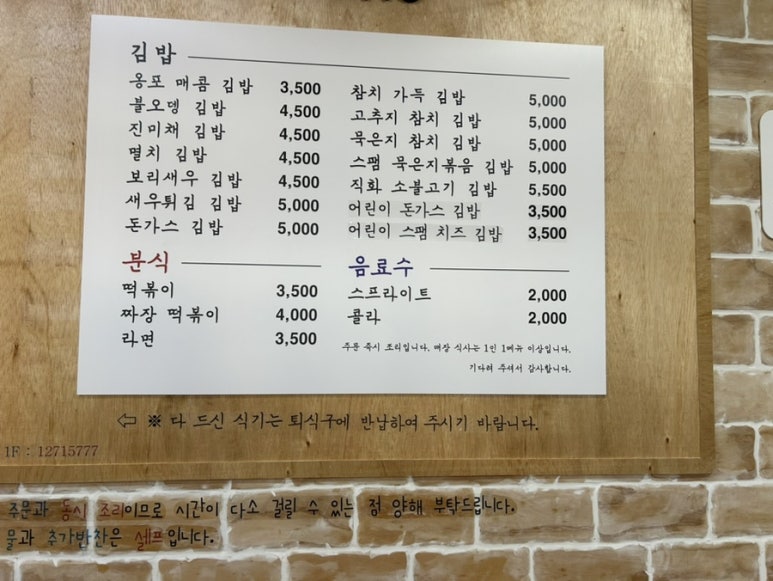 김밥
옹포 매콤 김밥 3,500
불오뎅 김밥 4,500
진미채 김밥 4,500
멸치 김밥 4,500
보리새우 김밥 4,500
새우튀김 김밥 5,000
돈가스 김밥 5,000
참치 가득 김밥 5,000
고추지 참치 김밥 5,000
묵은지 참치 김밥 5,000
스팸 묵은지볶음 김밥 5,000
직화 소불고기 김밥 5,500
어린이 돈가스 김밥 3,500
어린이 스팸 치즈 김밥 3,500
분식
떡볶이 3,500
짜장 떡볶이 4,000
라면 3,500
음료수
스프라이트 2,000
콜라 2,000
주문 즉시 조리입니다. 매장 식사는 1인 1메뉴 이상입니다.
기다려 주셔서 감사합니다.
⇦ ※ 다 드신 식기는 퇴식구에 반납하여 주시기 바랍니다.
1F : 12715777
주문과 동시 조리이므로 시간이 다소 걸릴 수 있는 점 양해 부탁드립니다.
물과 추가반찬은 셀프입니다.